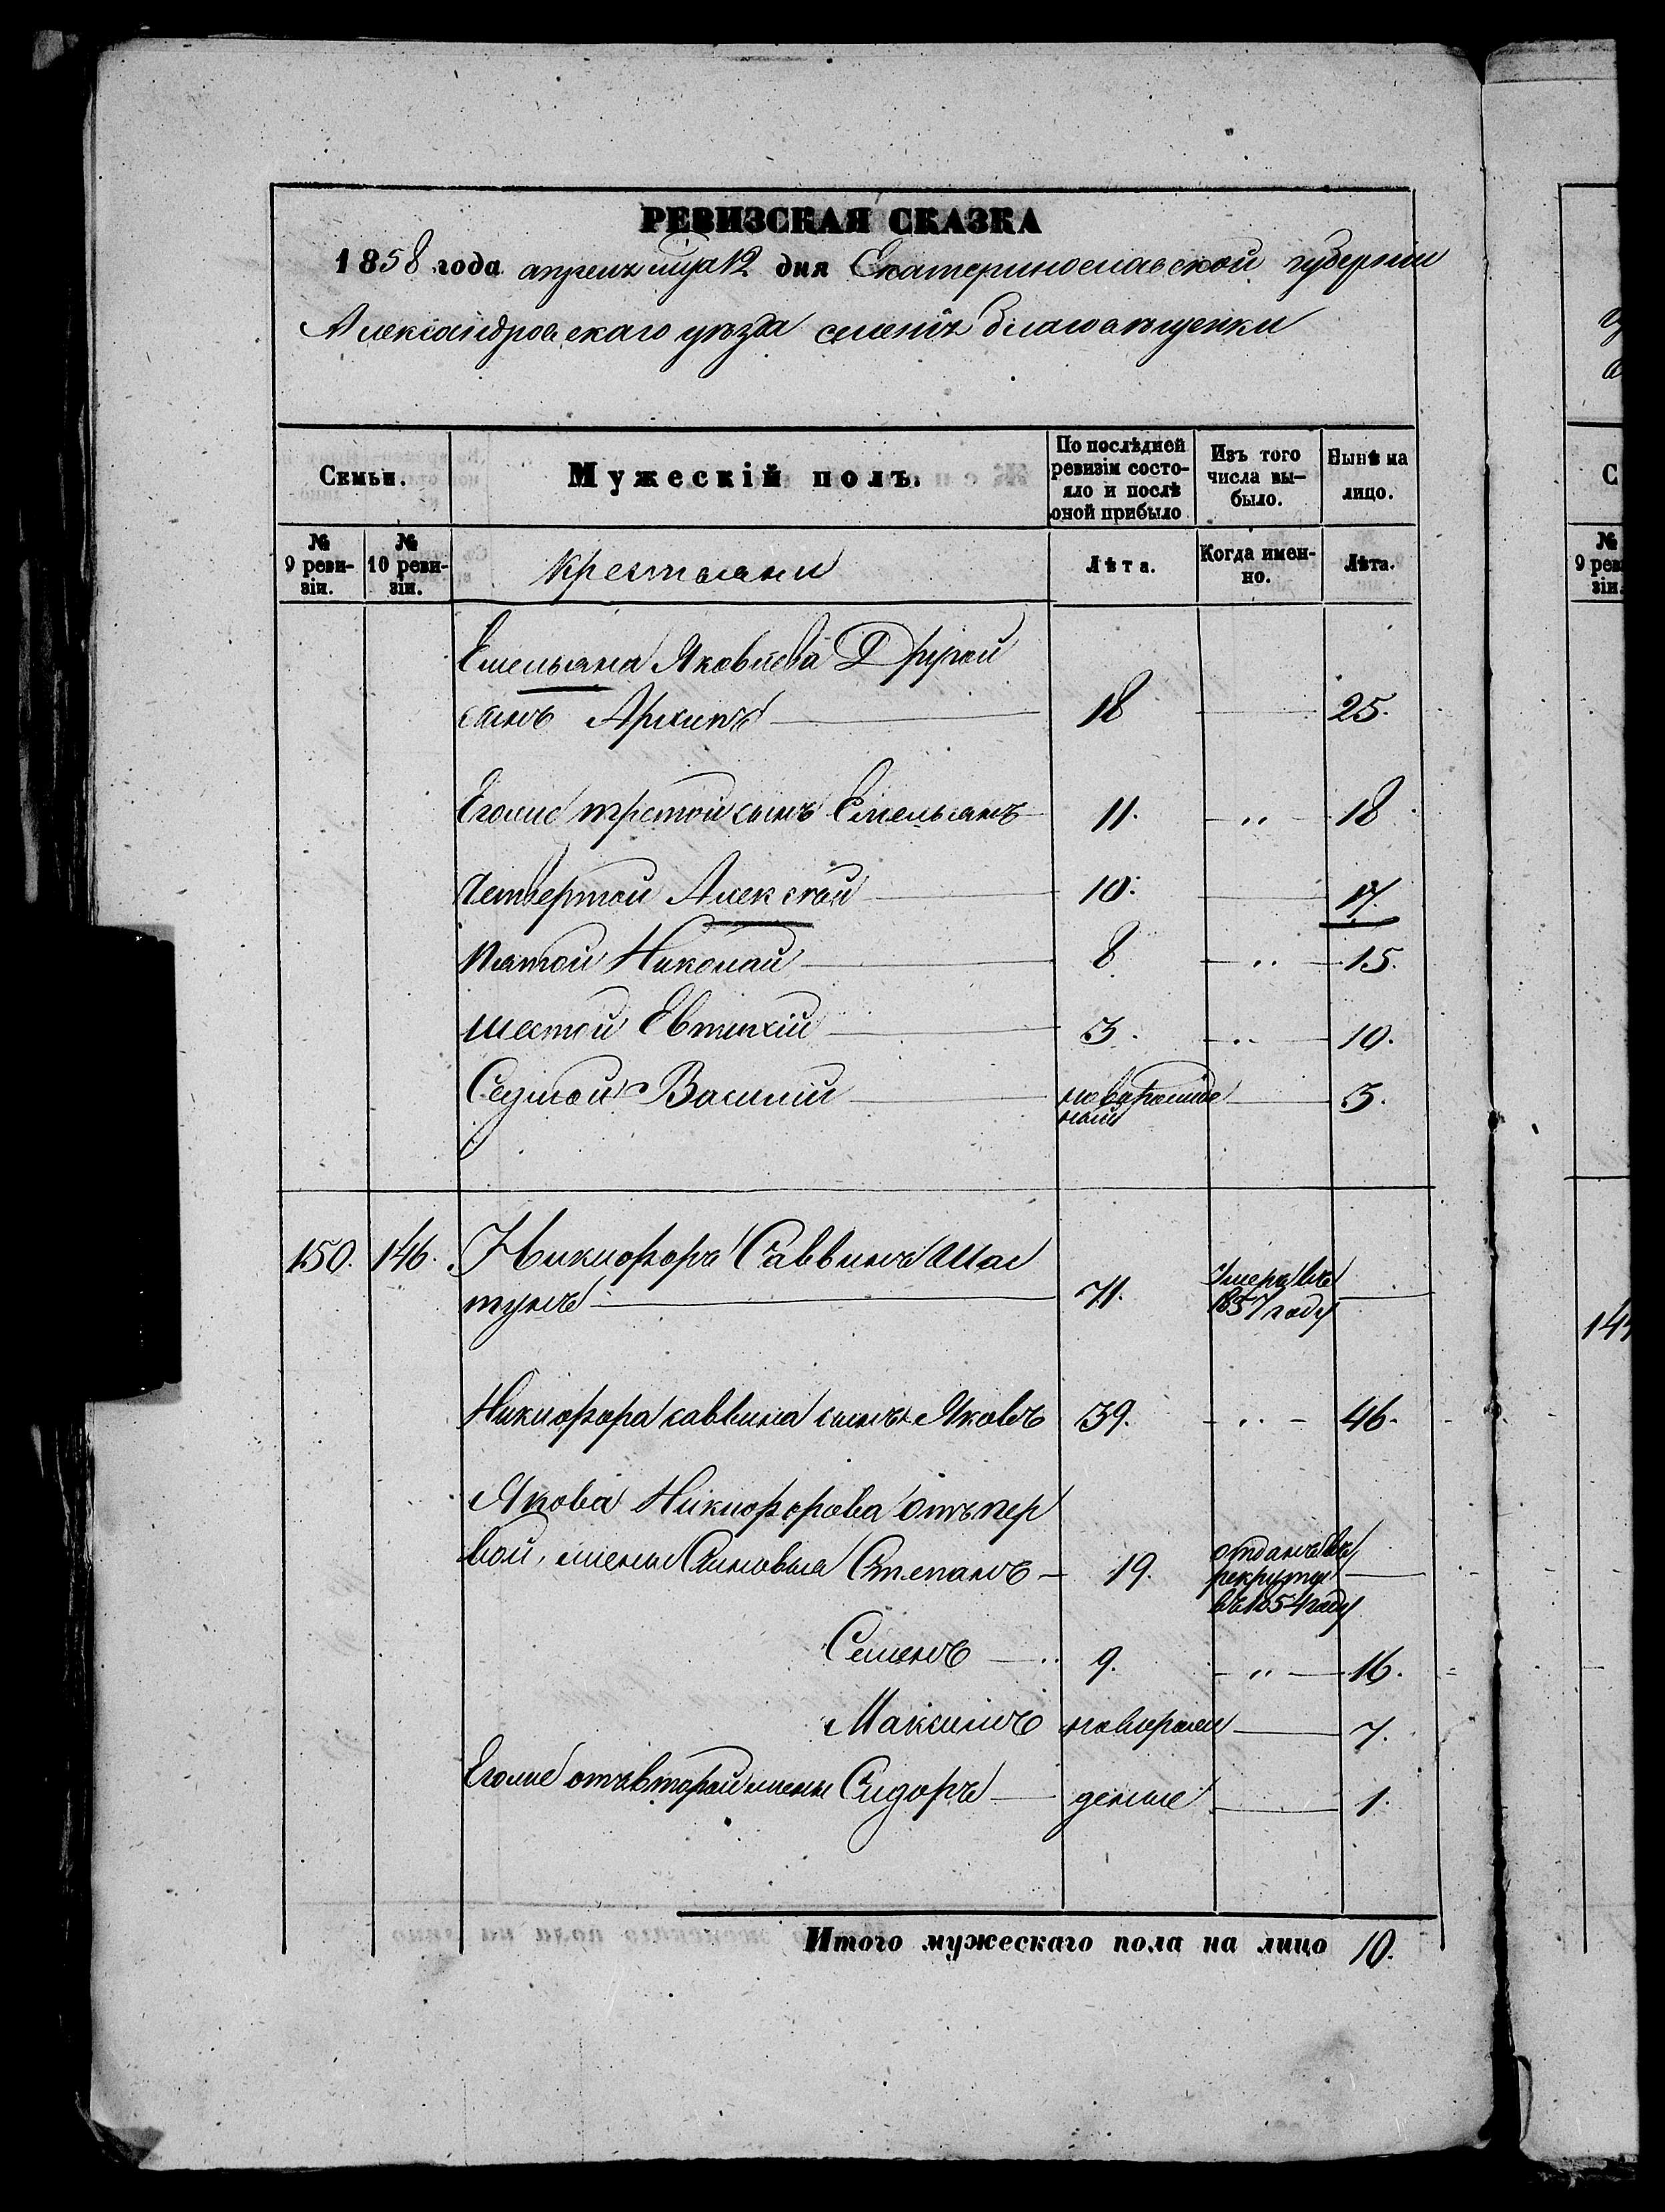 РЕВИЗСКАЯ СКАЗКА
1858 года апреля мца 12 дня Екатеринославской губернии
Александровскаго уѣзда селенія благовѣщенки
Семьи.
Мужескій полъ.
По послѣдней ревизіи состояло и послѣ оной прибыло
Изъ того числа выбыло.
Нынѣ на лицо.
№ 9 ревизіи.
№ 10 ревизіи.
Крестьяни
Лѣта.
Когда именно.
Лѣта.
Емельяна Яковлева Другой
сынъ Архипъ 18 25.
Егоже третой сынъ Емельянъ 11. " 18
Четвертой Алексѣй 10. 17.
пятой Николай 8 " 15.
шестой Евтихій 3. " 10.
Седмой Василій новорожденой 3.
150. 146. Никифоръ Саввинъ Шал
тунъ 71. Умеръ въ 1857 году
Никифора саввина сынъ Яковъ 39. " 46.
Якова Никифорова отъ пер
вой жены Сыновья Степанъ 19. отданъ въ рекруты въ 1854 году
Семенъ 9. " 16.
Максимъ новорож 7.
Егоже отъ второй жены Сидоръ деные 1.
Итого мужескаго пола на лицо 10.
С
№
9 рев
зіи.